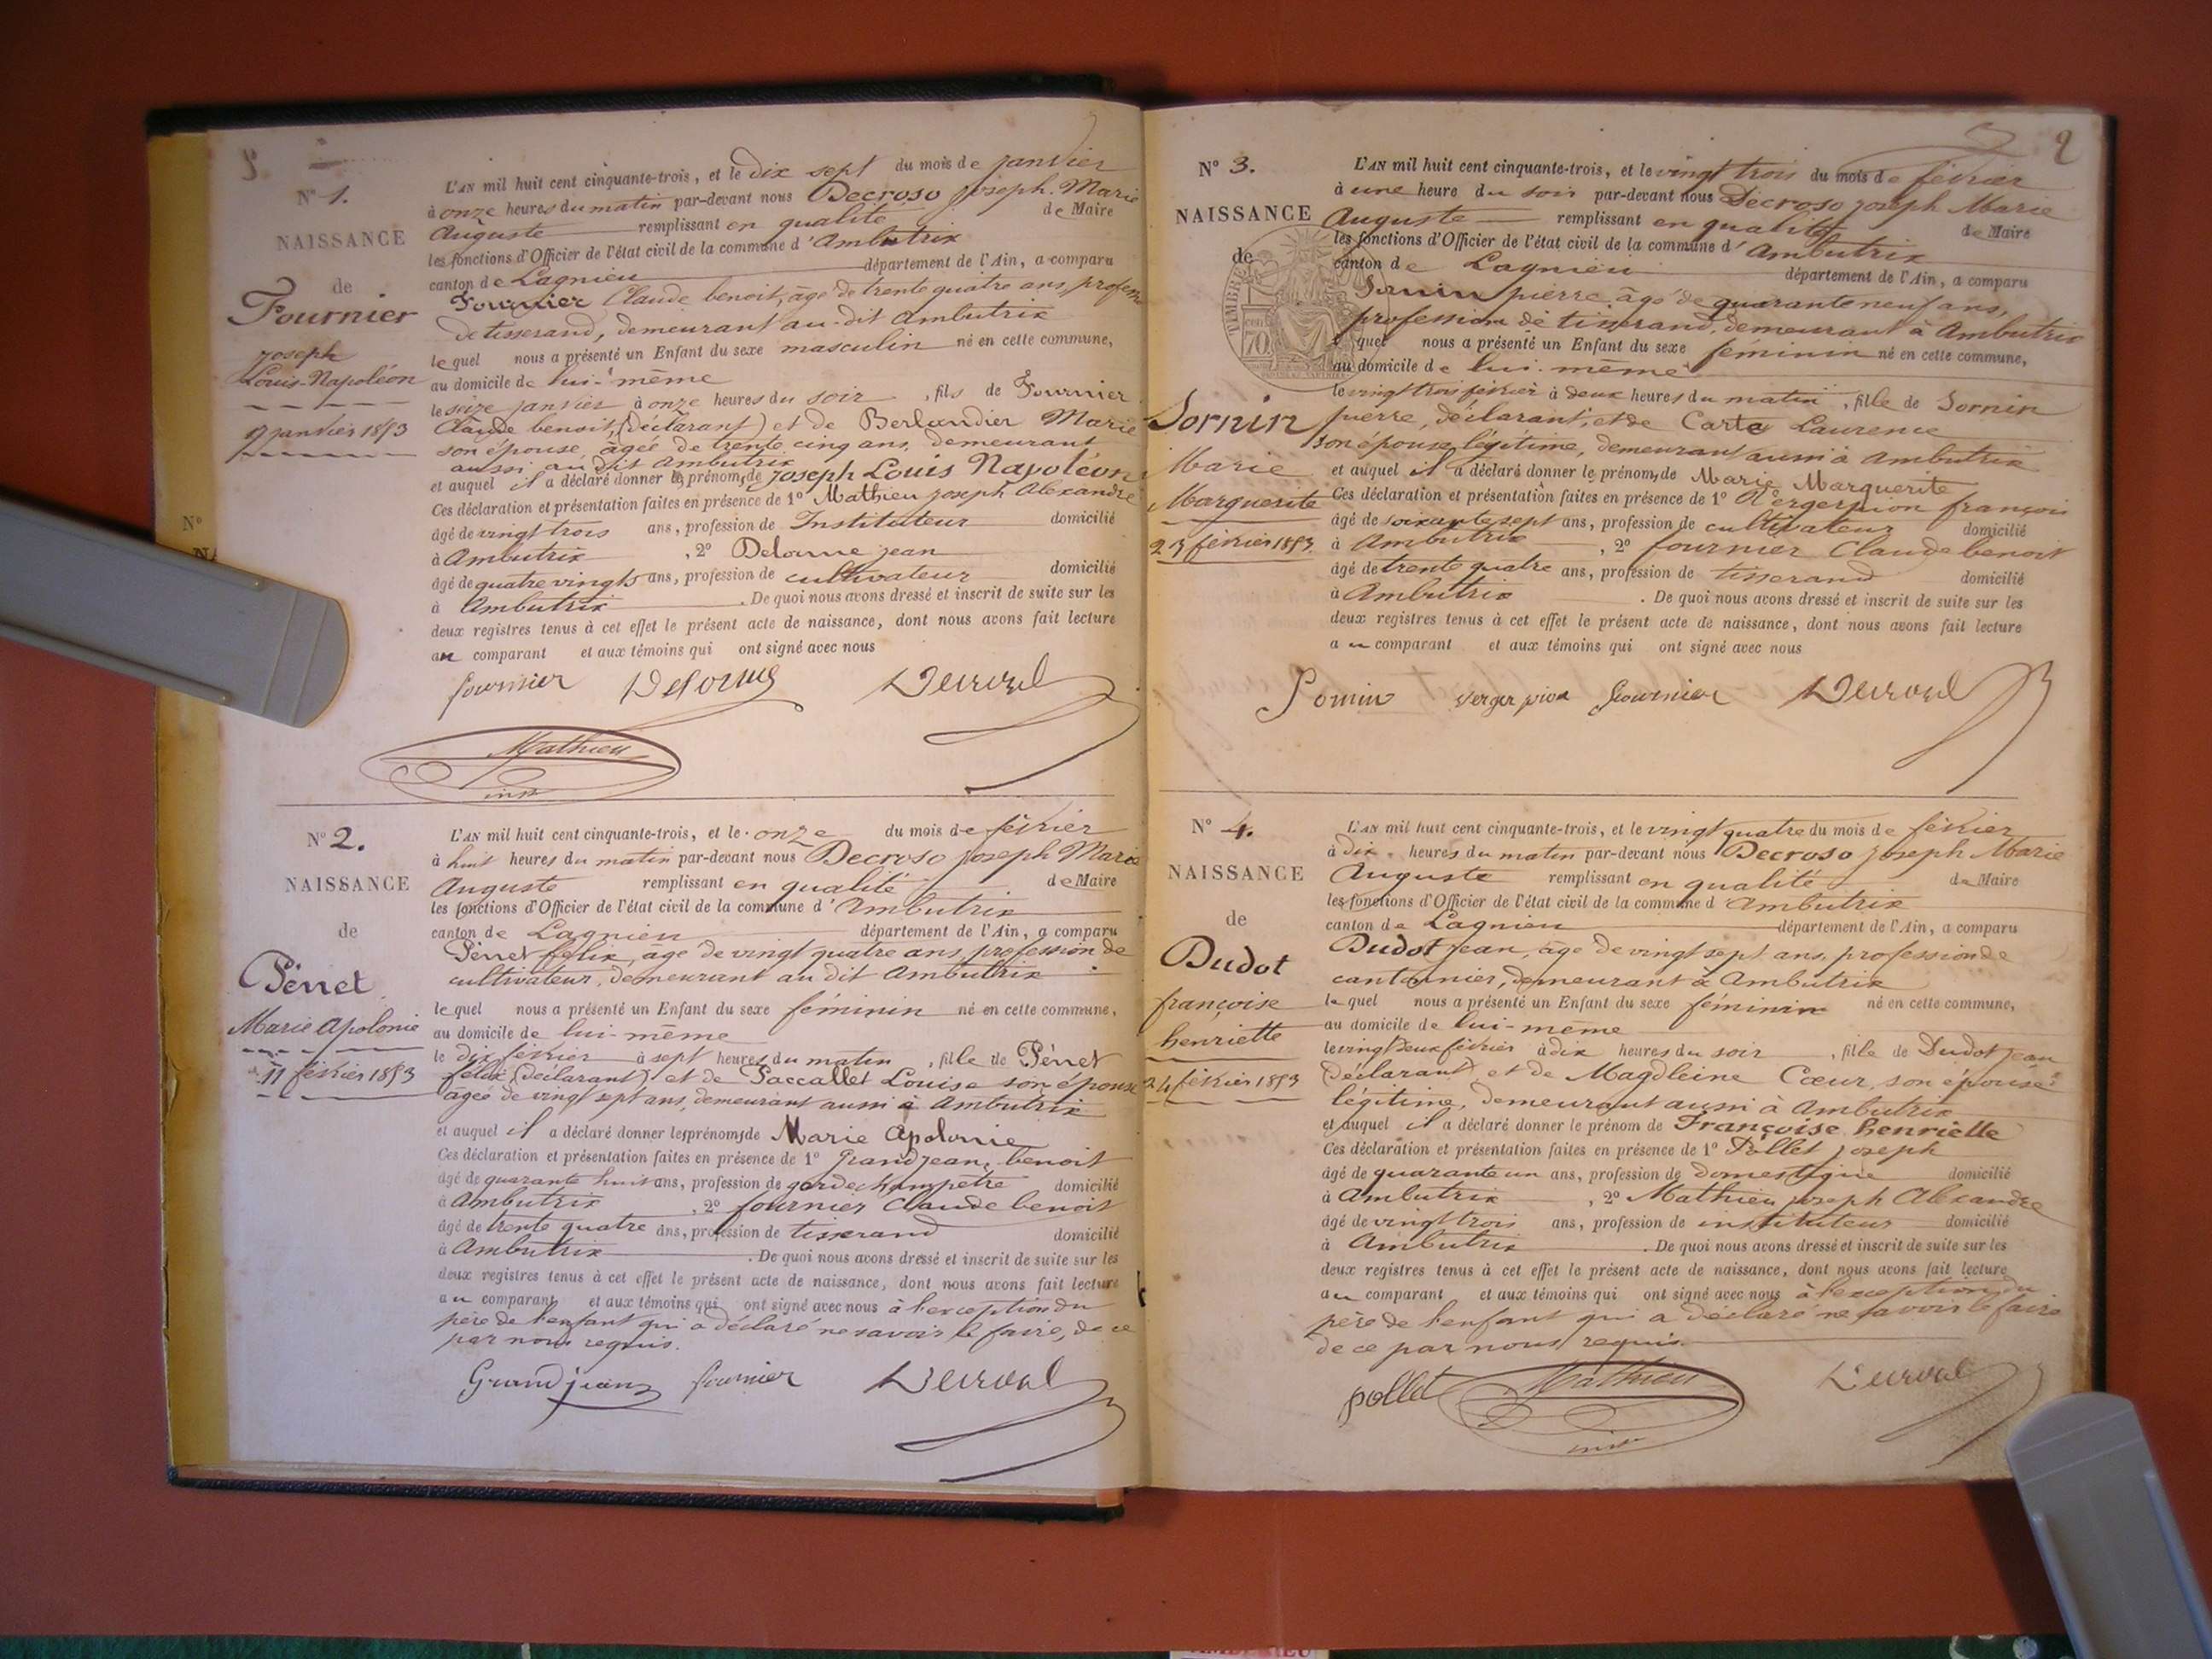 N° 1.
NAISSANCE
de
Fournier
joseph
Louis-Napoléon
17 janvier 1853
L'AN mil huit cent cinquante-trois, et le dix sept du mois de janvier
à onze heures du matin par-devant nous Decroso joseph Marie
Auguste remplissant en qualité de Maire
les fonctions d'Officier de l'état civil de la commune d'Ambutrix
canton de Lagnieu département de l'Ain, a comparu
Fournier Claude benoit, âgé de trente quatre ans, profession
de tisserand, demeurant au-dit Ambutrix
lequel nous a présenté un Enfant du sexe masculin né en cette commune,
au domicile de lui-même
le seize janvier à onze heures du soir, fils de Fournier
Claude benoit, (déclarant) et de Berlandier Marie
son épouse, âgée de trente cinq ans, demeurant
aussi au dit Ambutrix
et auquel il a déclaré donner les prénoms de joseph Louis Napoléon
Ces déclaration et présentation faites en présence de 1° Mathieu joseph Alexandre
âgé de vingt trois ans, profession de Instituteur domicilié
à Ambutrix, 2° Delorme jean
âgé de quatre vingts ans, profession de cultivateur domicilié
à Ambutrix. De quoi nous avons dressé et inscrit de suite sur les
deux registres tenus à cet effet le présent acte de naissance, dont nous avons fait lecture
au comparant et aux témoins qui ont signé avec nous
fournier Delorme
Mathieu
inst
N° 2.
NAISSANCE
de
Pénet
Marie Apolonie
11 février 1853
L'AN mil huit cent cinquante-trois, et le onze du mois de février
à huit heures du matin par-devant nous Decroso joseph Marie
Auguste remplissant en qualité de Maire
les fonctions d'Officier de l'état civil de la commune d'Ambutrix
canton de Lagnieu département de l'Ain, a comparu
Pénet felix, âgé de vingt quatre ans, profession de
cultivateur, demeurant au dit Ambutrix
lequel nous a présenté un Enfant du sexe féminin né en cette commune,
au domicile de lui-même
le dix février à sept heures du matin, fille de Pénet
félix (déclarant) et de Paccallet Louise son épouse
âgée de vingt sept ans, demeurant aussi à Ambutrix
et auquel il a déclaré donner les prénoms de Marie Apolonie
Ces déclaration et présentation faites en présence de 1° Grandjean, benoit
âgé de quarante huit ans, profession de garde champetre domicilié
à Ambutrix, 2° fournier Claude benoit
âgé de trente quatre ans, profession de tisserand domicilié
à Ambutrix. De quoi nous avons dressé et inscrit de suite sur les
deux registres tenus à cet effet le présent acte de naissance, dont nous avons fait lecture
au comparant et aux témoins qui ont signé avec nous à l'exception du
père de l'enfant qui a déclaré ne savoir le faire, de ce
par nous requis.
Grandjean fournier
2
N° 3.
NAISSANCE
de
TIMBRE
70
Sornin
Marie
Marguerite
23 février 1853
L'AN mil huit cent cinquante-trois, et le vingt trois du mois de février
à une heure du soir par-devant nous Decroso joseph Marie
Auguste remplissant en qualité de Maire
les fonctions d'Officier de l'état civil de la commune d'Ambutrix
canton de Lagnieu département de l'Ain, a comparu
Sornin pierre, âgé de quarante neuf ans,
profession de tisserand, demeurant à Ambutrix
lequel nous a présenté un Enfant du sexe féminin né en cette commune,
au domicile de lui-même
le vingt trois février à deux heures du matin, fille de Sornin
pierre, déclarant, et de Carta Laurence
son épouse légitime, demeurant aussi à Ambutrix
et auquel il a déclaré donner le prénoms de Marie Marguerite
Ces déclaration et présentation faites en présence de 1° Vergerpion françois
âgé de soixante sept ans, profession de cultivateur domicilié
à Ambutrix, 2° fournier Claude benoit
âgé de trente quatre ans, profession de tisserand domicilié
à Ambutrix. De quoi nous avons dressé et inscrit de suite sur les
deux registres tenus à cet effet le présent acte de naissance, dont nous avons fait lecture
au comparant et aux témoins qui ont signé avec nous
Sornin vergerpion fournier
N° 4.
NAISSANCE
de
Dudot
françoise
henriette
24 février 1853
L'AN mil huit cent cinquante-trois, et le vingt quatre du mois de février
à dix heures du matin par-devant nous Decroso joseph Marie
Auguste remplissant en qualité de Maire
les fonctions d'Officier de l'état civil de la commune d'Ambutrix
canton de Lagnieu département de l'Ain, a comparu
Dudot jean, âgé de vingt sept ans, profession de
cantonnier, demeurant à Ambutrix
lequel nous a présenté un Enfant du sexe féminin né en cette commune,
au domicile de lui-même
le vingt deux février à dix heures du soir, fille de Dudot jean
(déclarant) et de Magdleine Cœur, son épouse
légitime, demeurant aussi à Ambutrix
et auquel il a déclaré donner le prénom de Françoise henriette
Ces déclaration et présentation faites en présence de 1° Pollet joseph
âgé de quarante un ans, profession de domestique domicilié
à Ambutrix, 2° Mathieu joseph Alexandre
âgé de vingt trois ans, profession de instituteur domicilié
à Ambutrix. De quoi nous avons dressé et inscrit de suite sur les
deux registres tenus à cet effet le présent acte de naissance, dont nous avons fait lecture
au comparant et aux témoins qui ont signé avec nous à l'exception du
père de l'enfant qui a déclaré ne savoir le faire
de ce par nous requis.
pollet Mathieu
inst